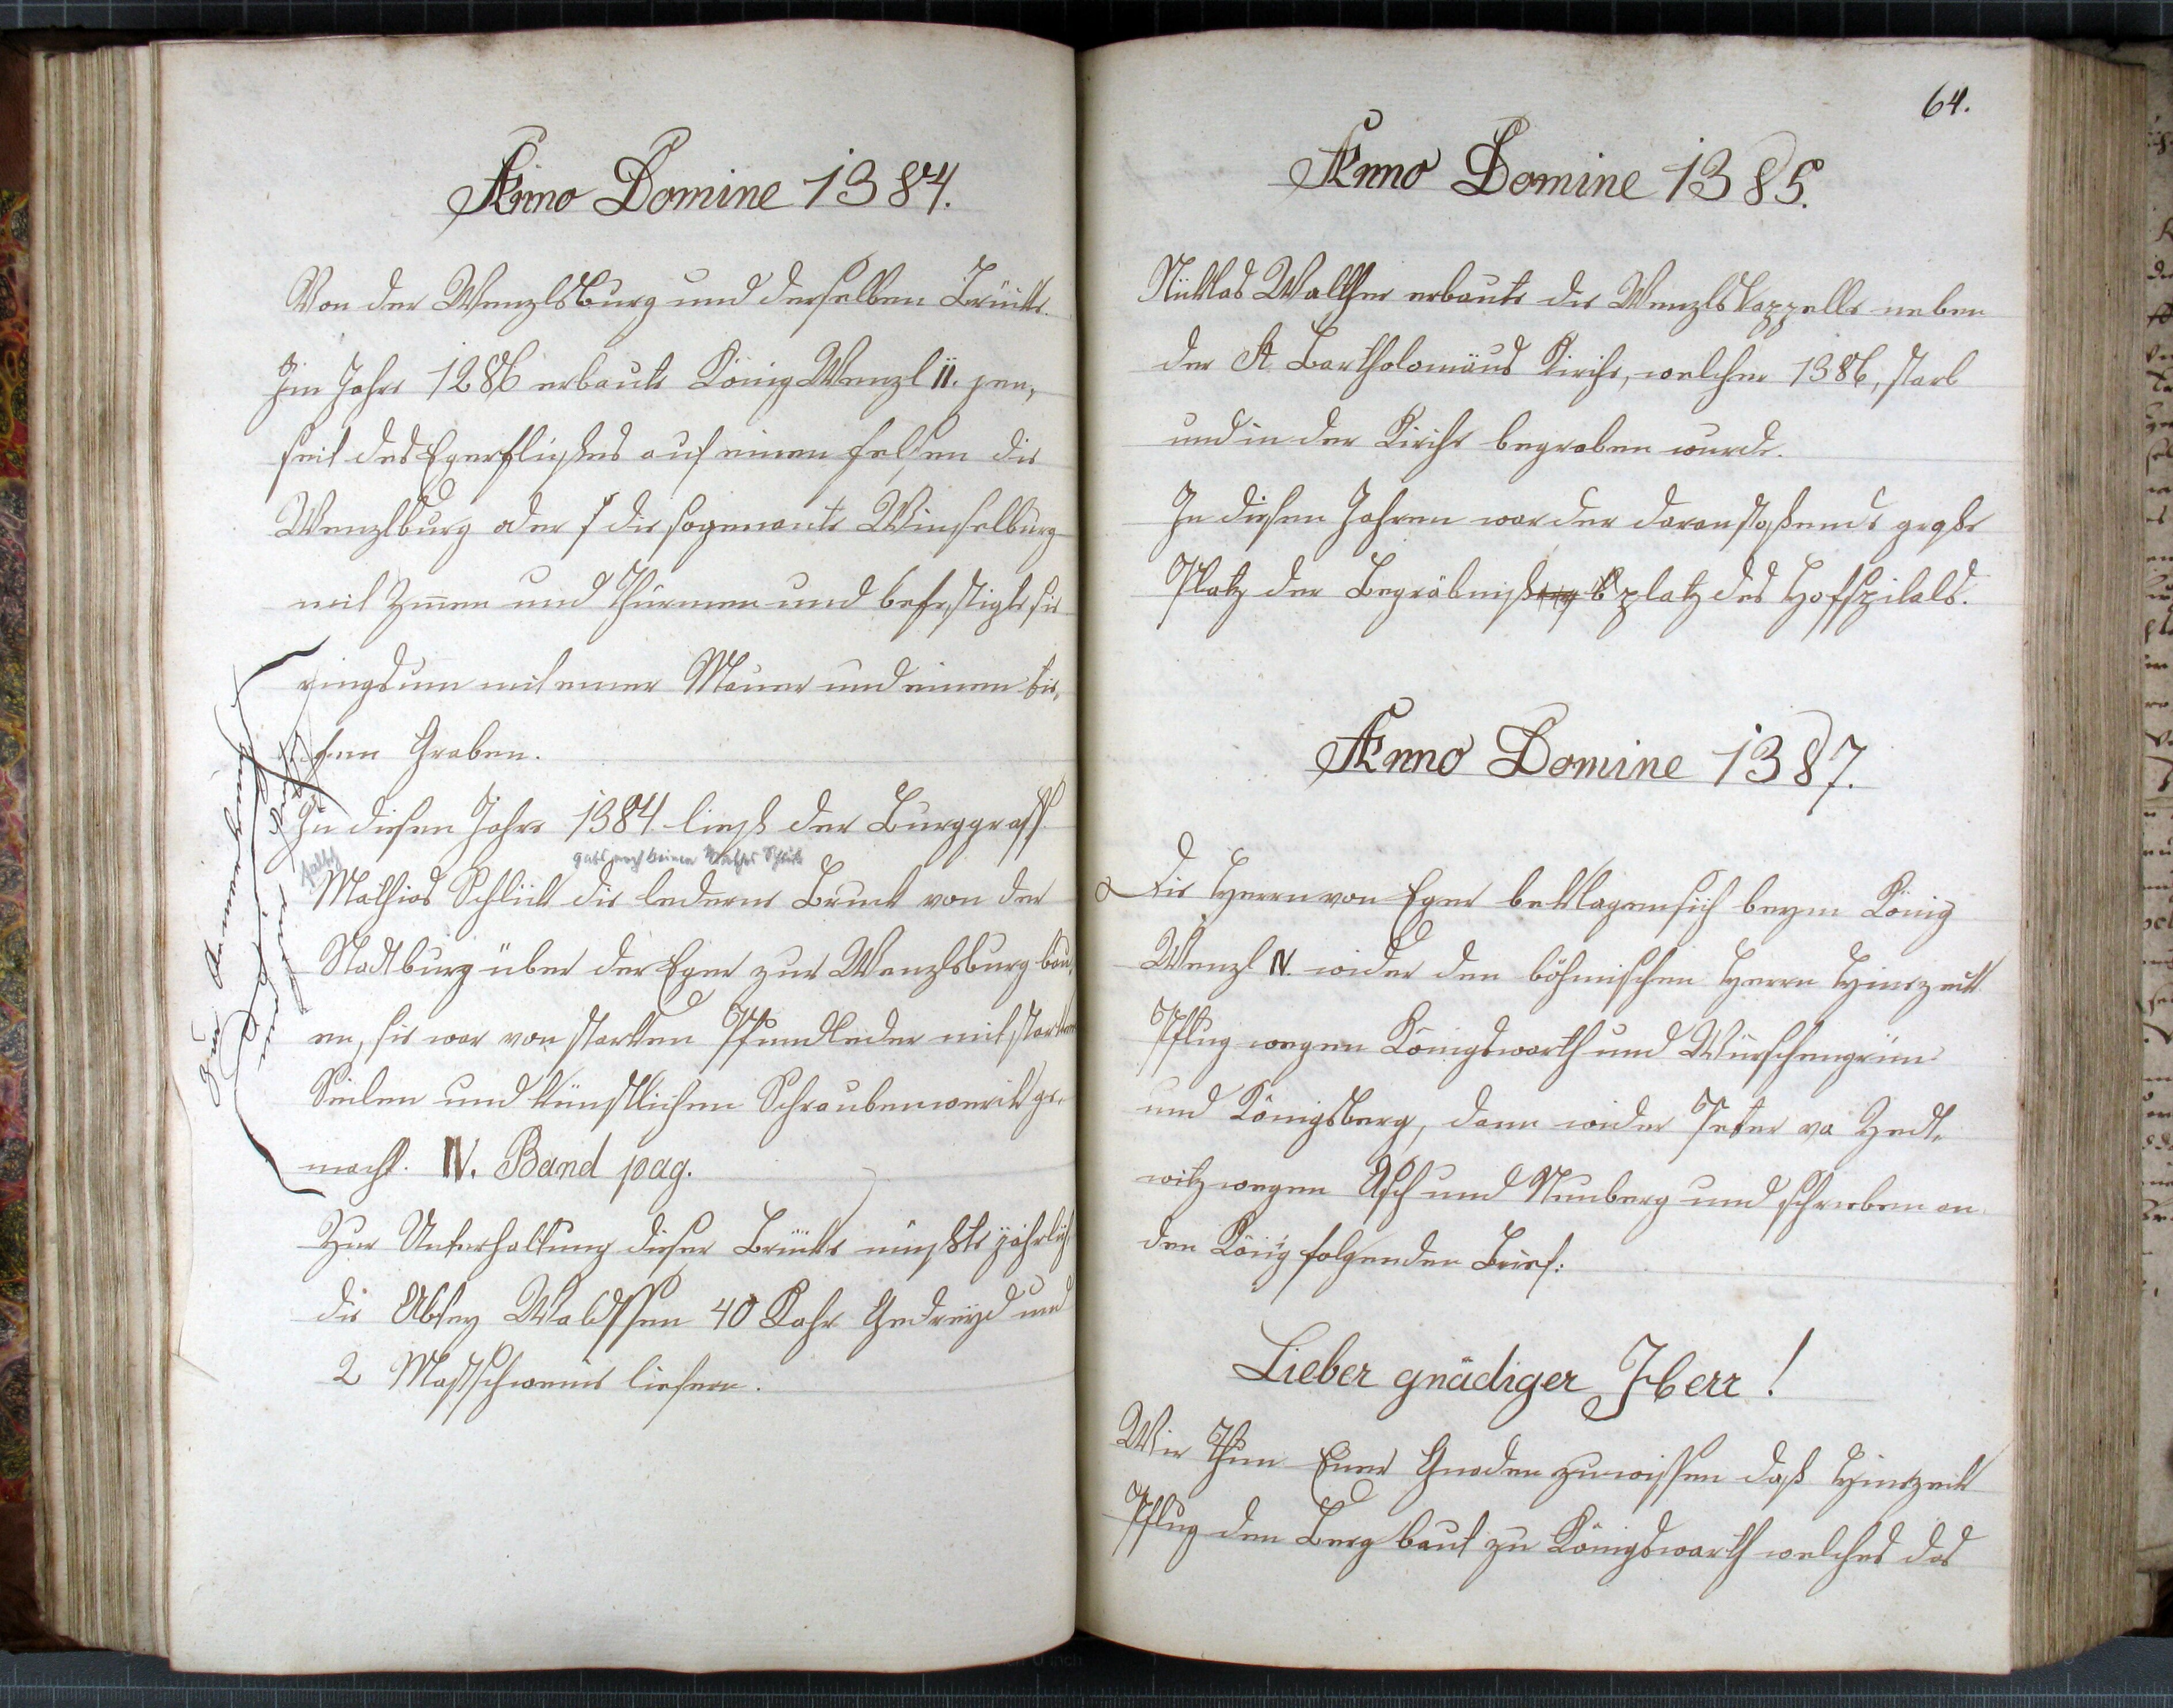 Anno Domine 1384.
Von der Wenzlsburg und derselben Brücke.
Im Jahre 1286 erbaute König Wenzl II. jen,
seit des Egerflußes auf einen Felsen die
Wenzlburg oder die sogenante Winselburg
mit Zinen und Thürmen und befestigte sie
ringsum mit einer Mauer und einen tie,
fen Graben.
In diesen Jahre 1384 ließ der Burggraff
falsch gabs noch keinen Mathes Schlick
Mathias Schlick die lederne Bruck von der
Stadtburg über der Eger zur Wenzlsburg bau,
en, sie war von starken Pfundleder mit starken
Seilen und künstlichen Schraubenwerk ge,
macht. IV. Band pag.
Zur Unterhaltung dieser Brücke mußte jährlich
die Abtey Waldssen 40 Kahr Gedreyd und
2 Mastschweine liefern.
64.
Anno Domine 1385.
Nicklas Walther erbaute die Wenzlskappelle neben
der St. Bartholomäus Kirche, welcher 1386, starb
und in der Kirche begraben wurde.
In diesen Jahren war der daranstoßende große
Platz der Begräbniß platz des Hofspitals.
Anno Domine 1387.
Die Herrn von Eger beklagen sich beym König
Wenzl IV. wider den böhmischen Herrn Hinrzeick
Pflug wegen Königswarth und Würschengrün
und Königsberg, dann wider Peter va Zedt,
witz wegen Asch und Neuberg und schrieben an
den König folgenden Brief:
Lieber gnädiger Herr!
Wir thun Euer Gnaden zu wissen daß Hinrzeick
Pflug den Berg baut zu Königswarth welches das